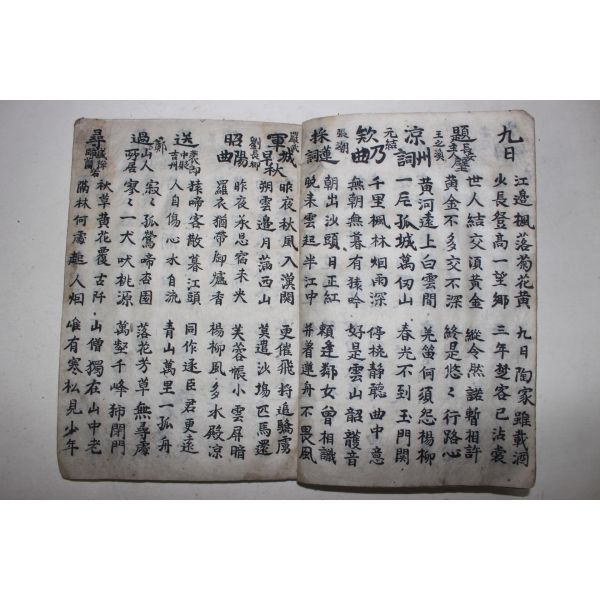 九日
江邊楓落菊花黃 九日陶家雖載酒
少長登高一望鄉 三年楚客已沾裳
題長安主人壁
世人結交須黃金 縱令然諾暫相許
黃金不多交不深 終是悠々行路心
王之渙
凉州詞
黃河遠上白雲間 羌笛何須怨楊柳
一片孤城萬仞山 春光不到玉門關
元結
欸乃曲
千里楓林烟雨深 停橈靜聽曲中意
無朝無暮有猿吟 好是雲山韶頀音
張潮
採蓮詞
朝出沙頭日正紅 賴逢鄰女曾相識
晚來雲起半江中 並着蓮舟不畏風
嚴武
軍城早秋
昨夜秋風入漢關 更催飛將追驕虜
朔雲邊月滿西山 莫遣沙場匹馬還
劉長卿
昭陽曲
昨夜承恩宿未央 芙蓉帳小雲屏暗
羅衣猶帶御爐香 楊柳風多水殿凉
送裴郎中貶吉州
猿啼客散暮江頭 同作逐臣君更遠
人自傷心水自流 青山萬里一孤舟
過鄭山人所居
寂々孤鶯啼杏園 落花芳草無尋處
寂々一犬吠桃源 萬壑千峰獨閉門
尋盛禪師蘭若
秋草黃花覆古阡 山僧獨在山中老
隔林何處起人烟 唯有寒松見少年